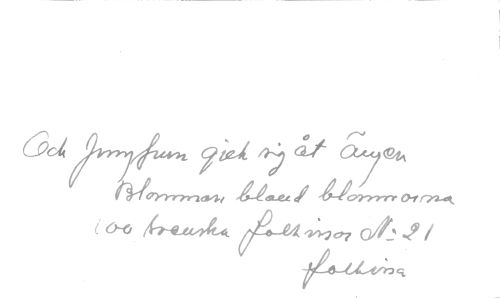 Och Jungfrun gick sig åt Ängen
Blomman bland blommorna
100 svenska folkvisor No 21
folkvisa